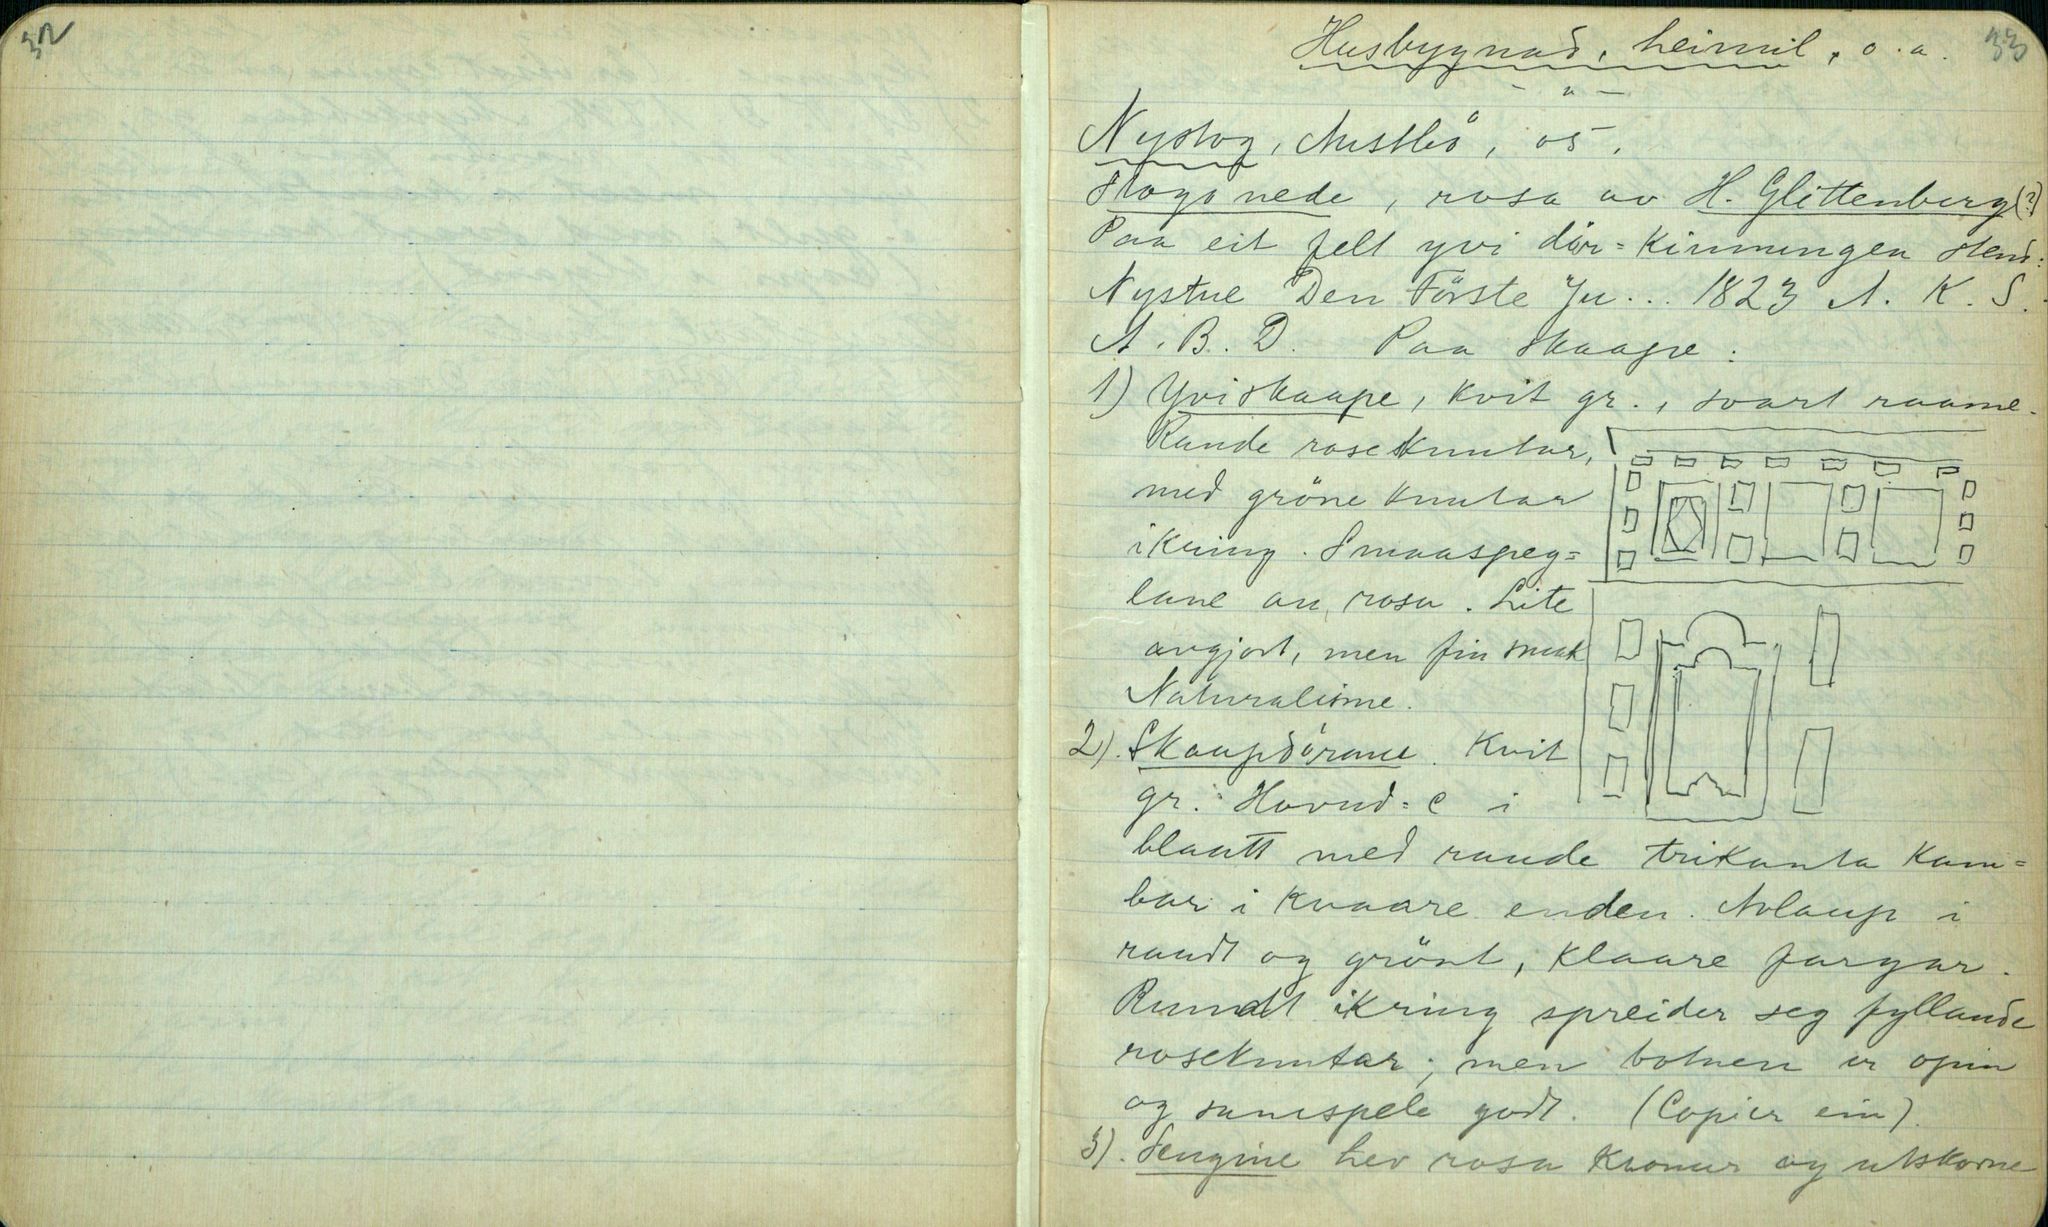 32
33
Husbygnad, heimil, o.a.
- " -
Nystog, Austbö, ø5.
Stogo nede, rosa av H. Glittenberg (?)
Paa eit felt yvi dör=kimmingen stend:
Nystue Den Förste Ju... 1823 A. K. S.
A. B. D. Paa skaape:
1) Yviskaape, kvit gr., svart raame.
Runde roseknutar,
med gröne knutar
ikring. Smaaspeg=
lane au, rosa. Lite
avgjort, men fin smak
Naturalisme.
2). Skaapdörane. Kvit
gr. Hovud=C i
blaatt med raude trikanta kam=
bar i kvaare enden. Avlaup i
raudt og grönt, klaare fargar.
Rundt ikring spreider seg fyllande
roseknutar; men botnen er open
og samspele godt. (Copier ein).
3). Sengine hev rosa kronur og utskorne